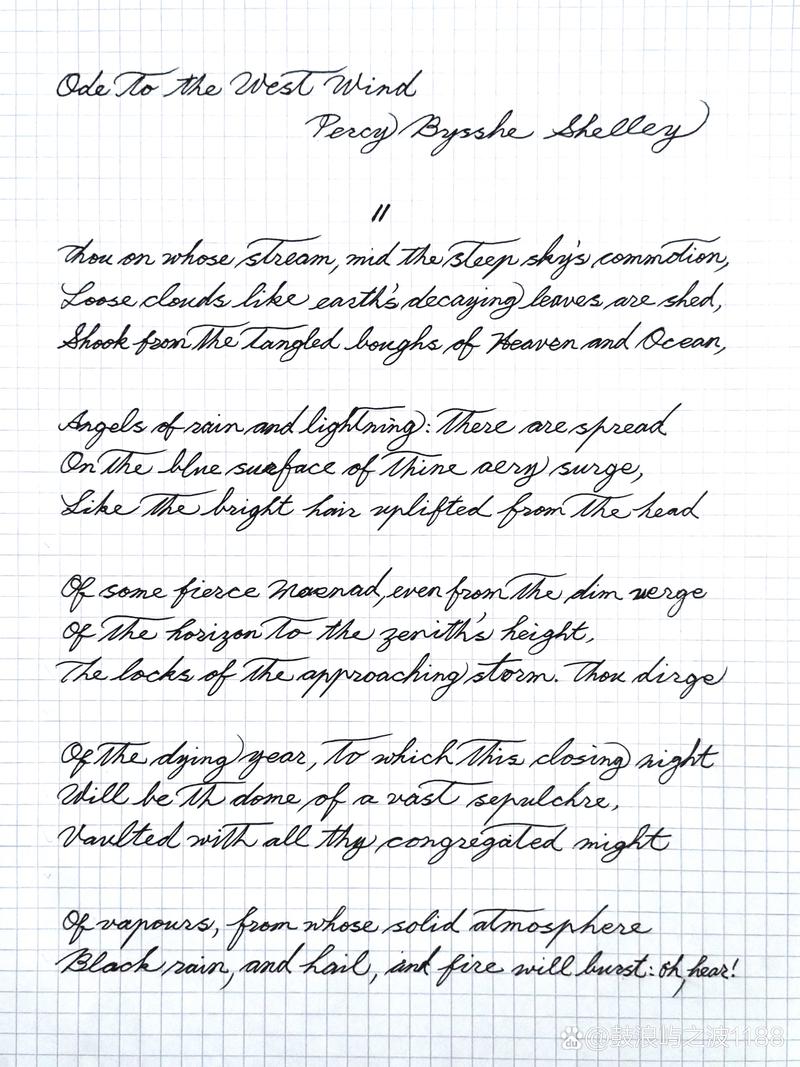 Ode To the West Wind
Percy Bysshe Shelley
II
Thou on whose stream, mid the steep sky's commotion,
Loose clouds like earth's decaying leaves are shed,
Shook from the tangled boughs of Heaven and Ocean,
Angels of rain and lightning: There are spread
On the blue surface of thine aery surge,
Like the bright hair uplifted from the head
Of some fierce Maenad, even from the dim verge
Of the horizon to the zenith's height,
The locks of the approaching storm. Thou dirge
Of the dying year, to which this closing night
Will be th dome of a vast sepulchre,
Vaulted with all thy congregated might
Of vapours, from whose solid atmosphere
Black rain, and hail, and fire will burst: oh, hear!
du @鼓浪屿之波1188